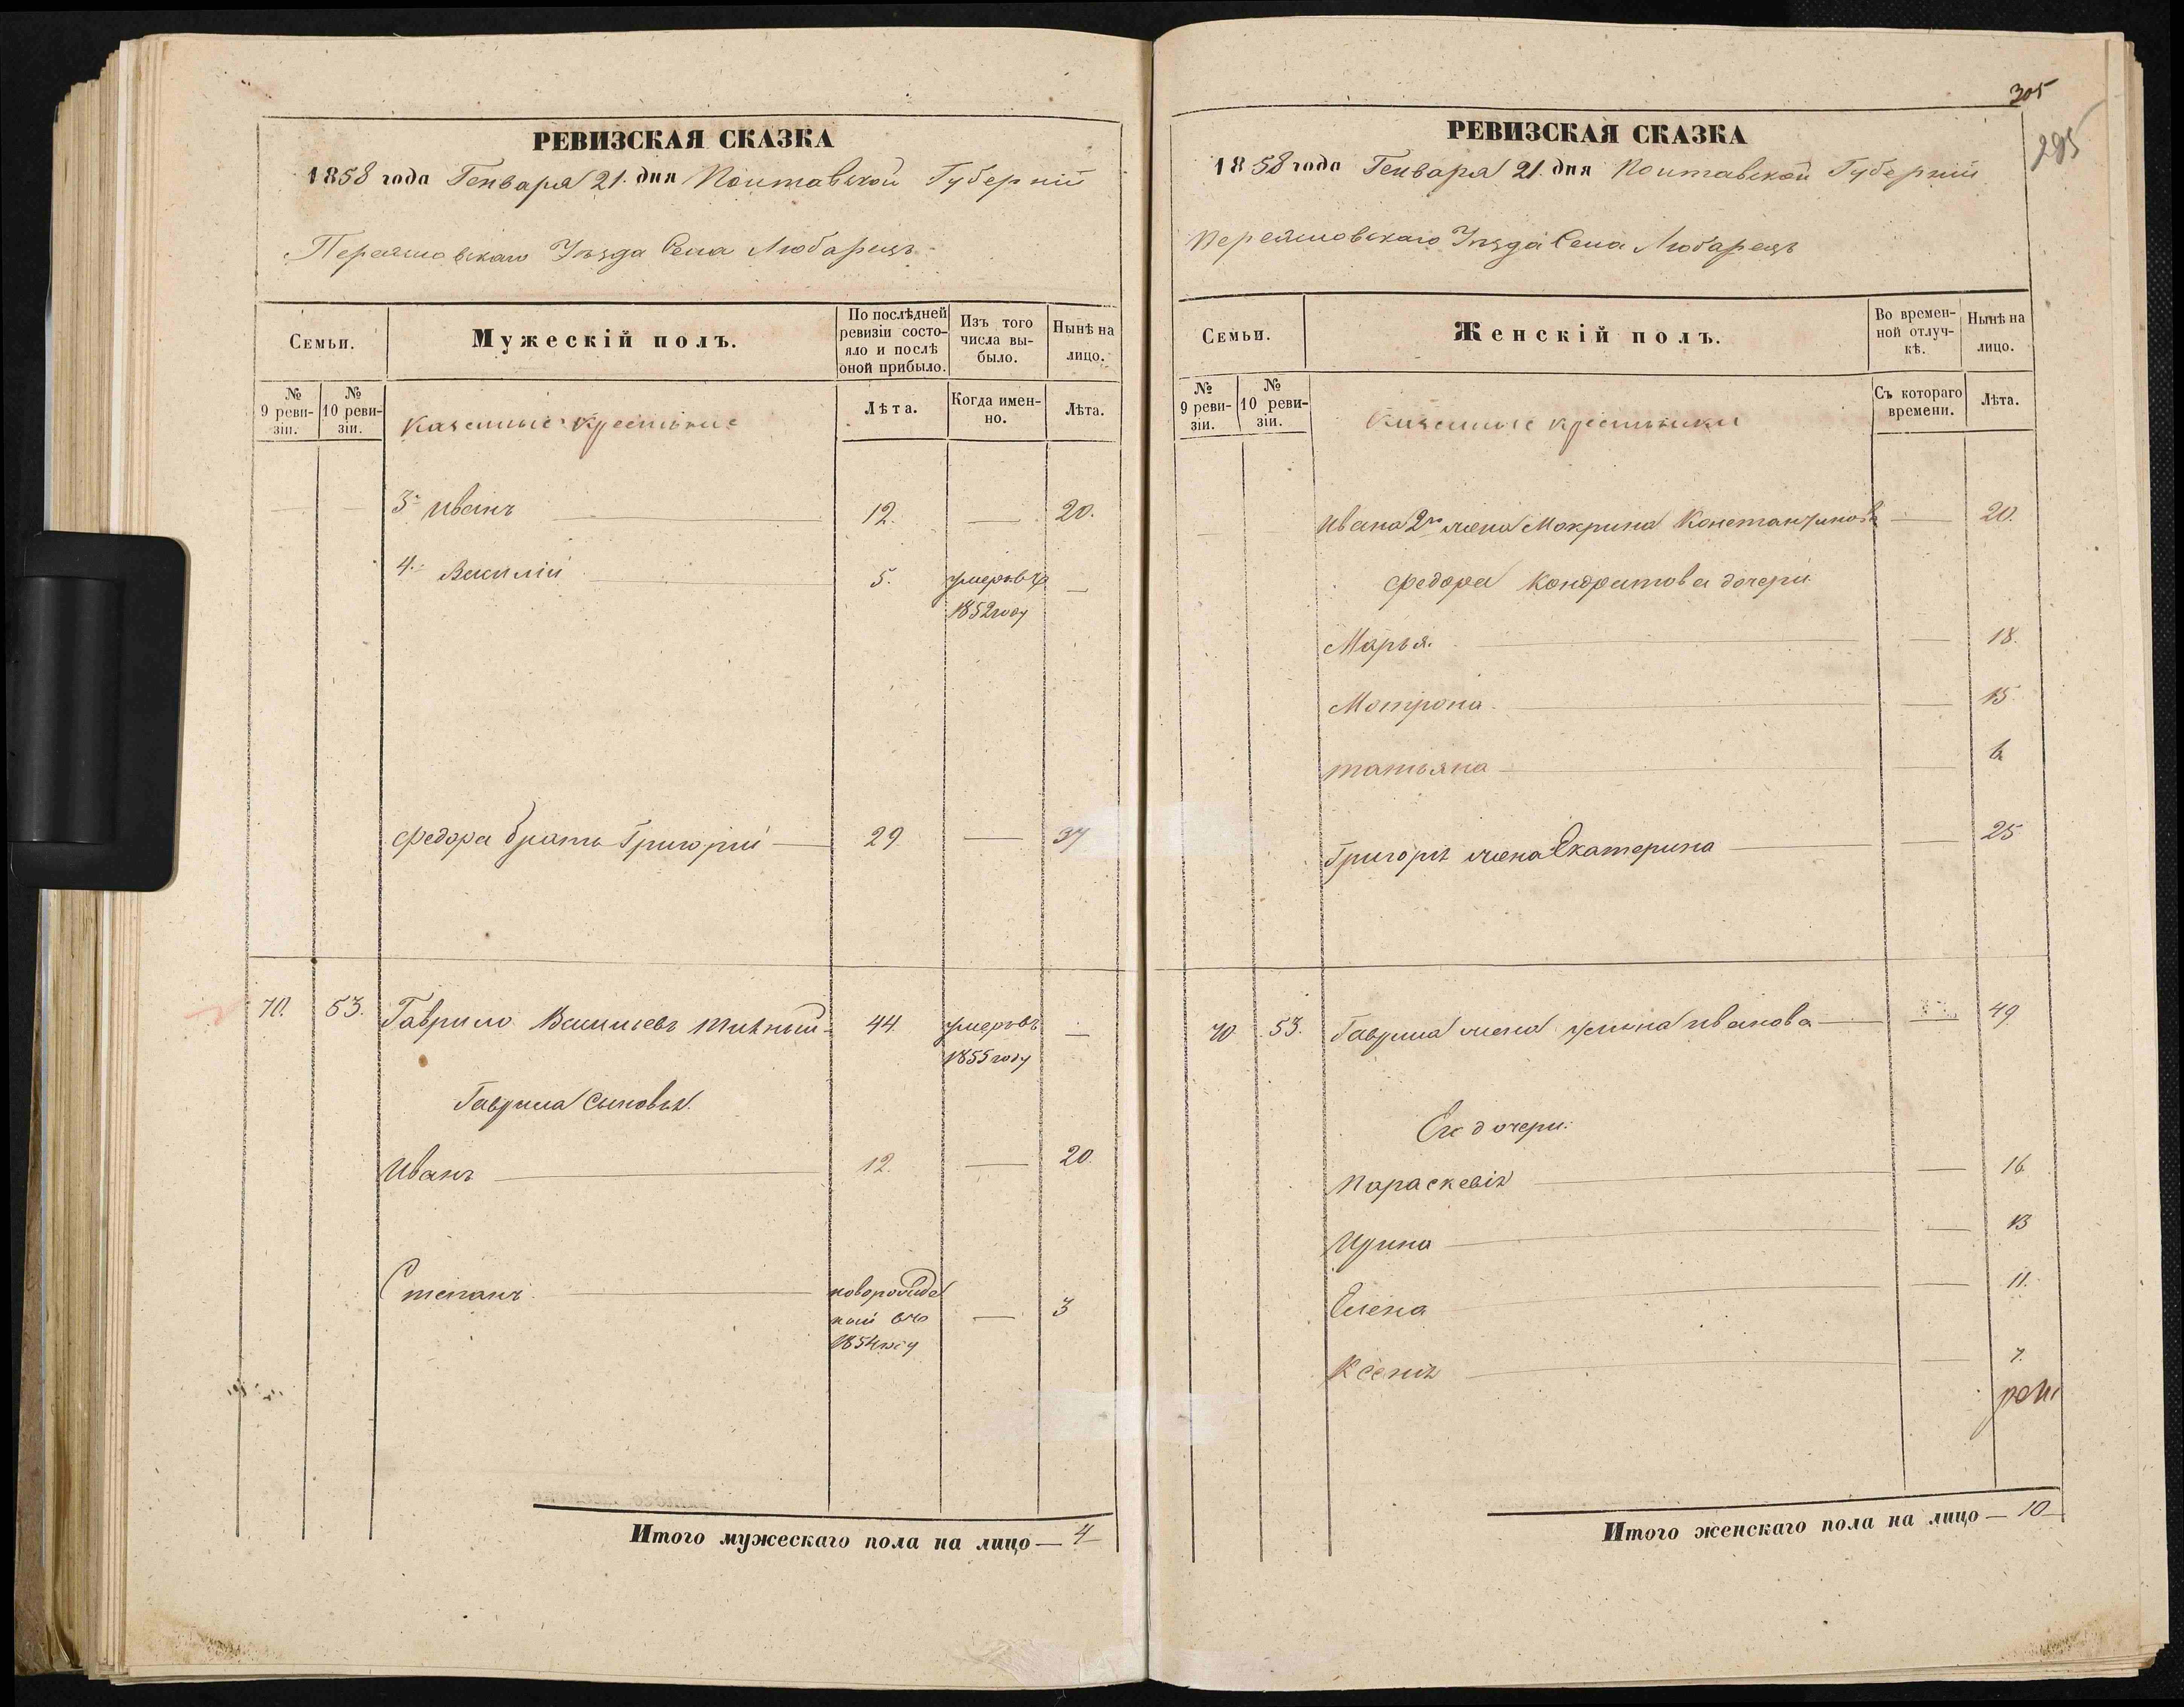 РЕВИЗСКАЯ СКАЗКА
1858 года Генваря 21. дня Полтавской Губерніи
Переяславскаго Уѣзда Села Любарецъ
Семьи.
Мужескій полъ.
По послѣдней ревизіи состояло и послѣ оной прибыло.
Изъ того числа выбыло.
Нынѣ на лицо.
№ 9 ревизіи.
№ 10 ревизіи.
Казенные крестьяне
Лѣта.
Когда именно.
Лѣта.
— — 3й Иванъ — 12. — 20.
4й Василій — 5. умеръ въ —
1852 году
Федора братъ Григорій — 29 — 37
70. 53. Гаврило Васильевъ 44. умеръ въ —
1855 году
Гаврила сыновья.
Иванъ — 12. — 20.
Степанъ — новорожден
ный въ — 3
1854 году
Итого мужескаго пола на лицо — 4
305
295
РЕВИЗСКАЯ СКАЗКА
1858 года Генваря 21. дня Полтавской Губерніи
Переяславскаго Уѣзда Села Любарецъ
Семьи.
Женскій полъ.
Во временной отлучкѣ.
Нынѣ на лицо.
№ 9 ревизіи.
№ 10 ревизіи.
Казенные крестьянки
Съ котораго времени.
Лѣта.
Ивана 2го жена Макрина Константинова — 20.
Федора Кондратова дочери
Марья. — — 18.
Мотрона. — — 15.
Татьяна — — 6
Григорія жена Екатерина — — 25
70. 53. Гаврила жена Ивановна — 49
Его дочери:
Параскевія — — 16
Ирина — — 13
Елена — — 11.
Ксенія — — 7.
Итого женскаго пола на лицо — 10